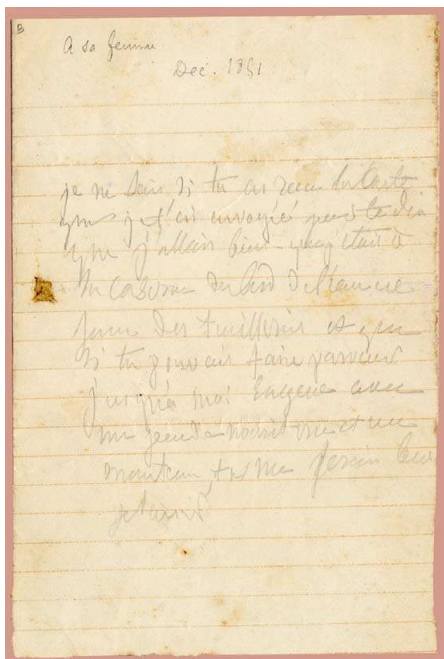 B
A sa femme
Dec. 1851
je ne sais si tu as recu
que je t'ai envoyée pour te dire
que j'allais bien - que j'étais à
la caserne du
des tuilleries et que
si tu pouvais faire parvenir
jusqu'à moi Eugene avec
un peu de nourriture et un
manteau, tu me ferais bien
plaisir